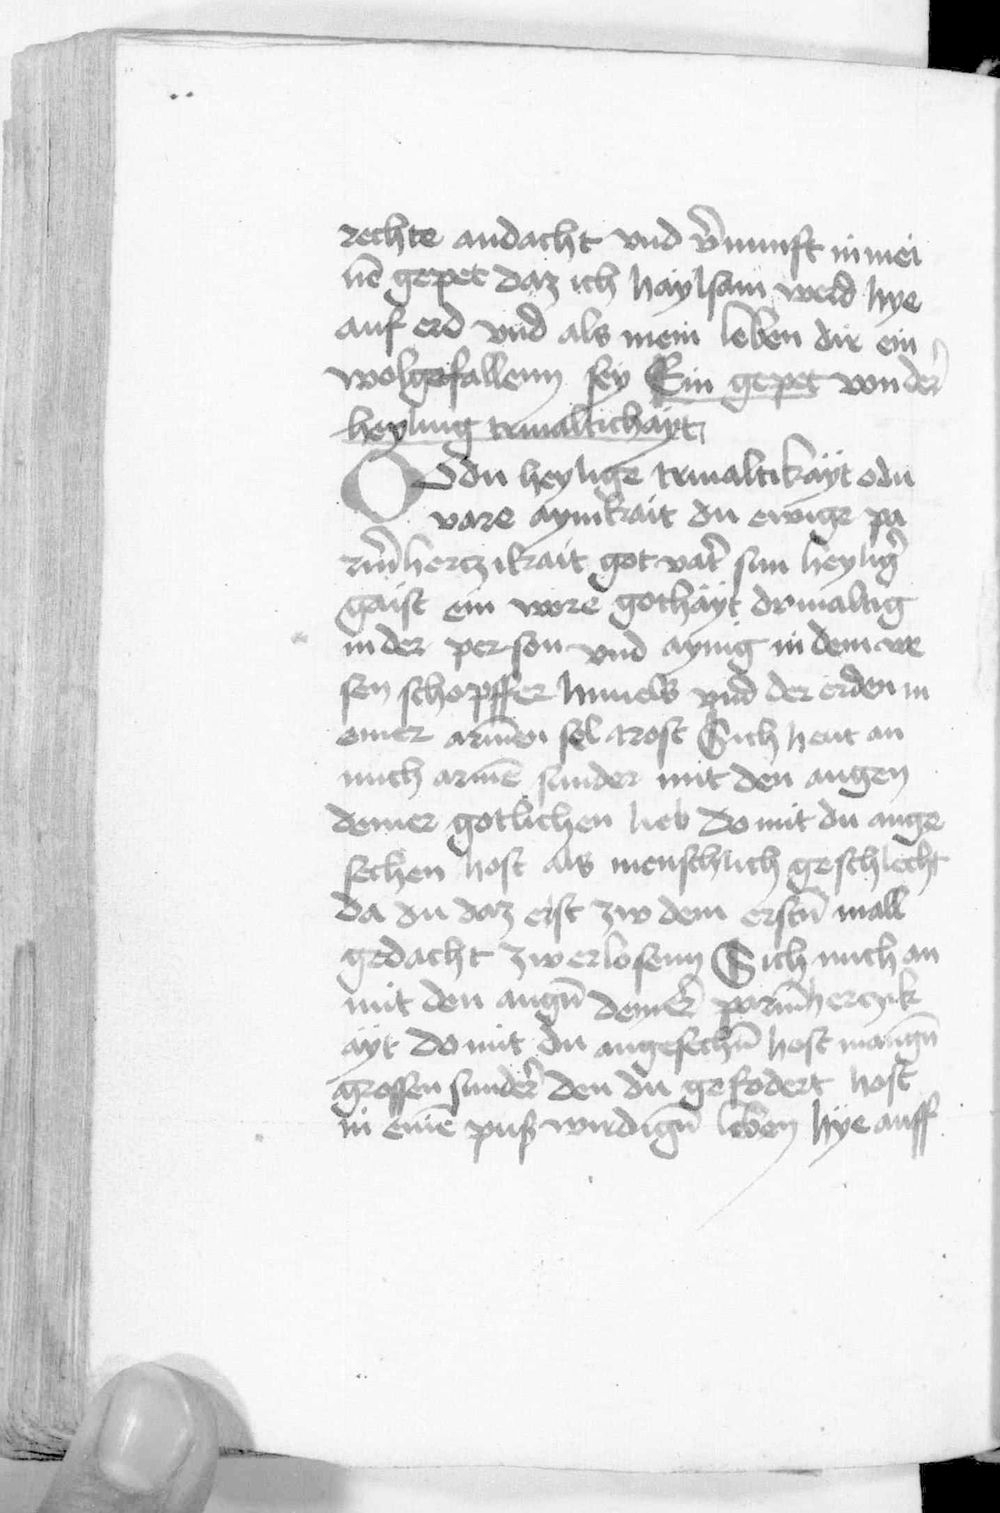 rechte andacht vnd v̄nunft in mei
nē gepet daz ich haylsam werd hye
auf erd vnd als mein leben dir ein
wolgefallenn sey Ein gepet von der
heyling trinaltichayt
O O du heylige trinaltikäyt o du
vare aynikait du ewige pa
rm̄hertzikait got vat̄ sun heyliḡ
gaist ein wore gothäyt drinaltig
in der person vnd aynig in dem we
sen schopffer himels vnd der erden in
einer armen sel trost Sich heut an
mich armē sunder mit den augen
deiner gotlichen lieb do mit du ange
sechen host als menschlich geschlecht
da du daz erst zw dem erstn̄ mall
gedacht zw erlosenn Sich mich an
mit den augn̄ deyner parm̄herczik
äyt do mit du angesechn̄ host mangn̄
grossen sunder̄ den du gefodert host
in einē puß wirdign̄ leben hye auff